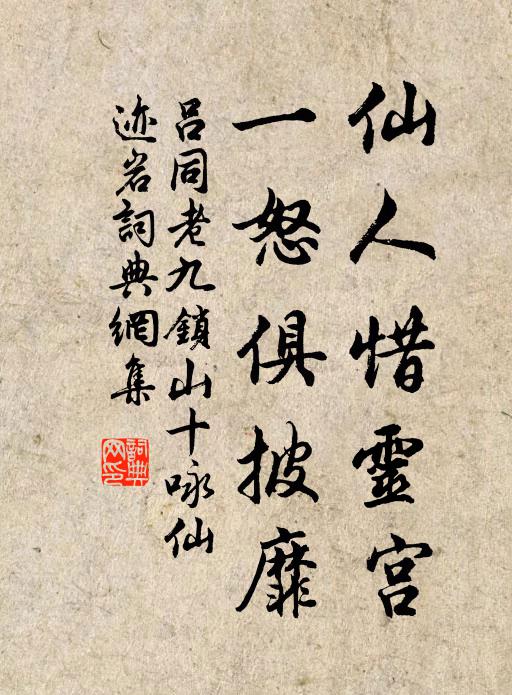 仙人惜靈宫
一怒俱披靡
吕同老九鎖山十咏仙
迹岩詞典網集
詞典
网印